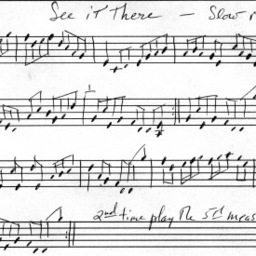 See it There — Slow r
2nd time play the 5th meas